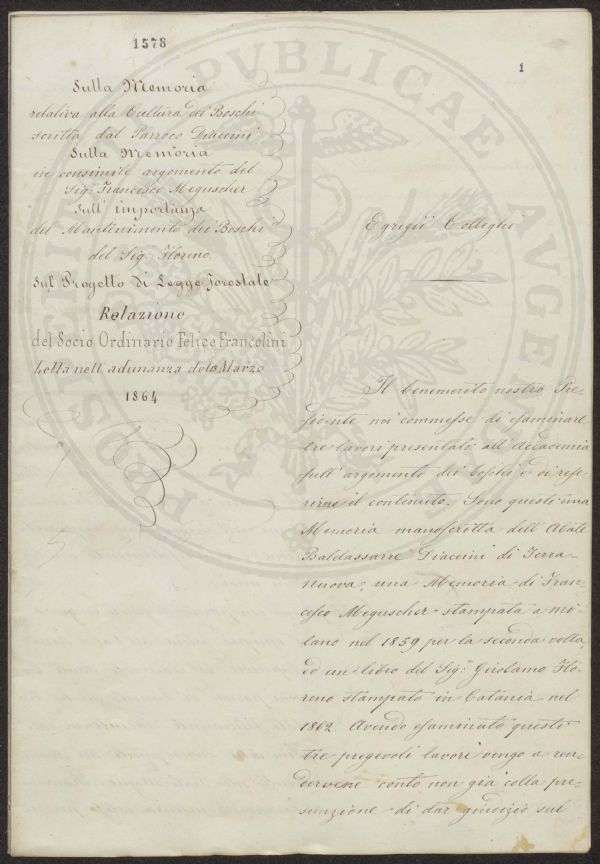 1578
1
Sulla Memoria
relativa alla Cultura dei Boschi
scritta dal Parroco Diaccini
Sulla Memoria
in consimile argomento del
Sig. Francesco Meguscher
Sull' importanza
del Mantenimento dei Boschi
del Sig. Floreno.
Sul Progetto di Legge forestale
Relazione
del Socio Ordinario Felice Francolini
Letta nell' adunanza del Marzo
1864
Egregii Colleghi
Il benemerito nostro Pre-
sidente noi commesse di esaminare
tre lavori presentati all' Accademia
sull' argomento dei boschi e di refe-
rirne il contenuto. Sono questi una
Memoria manoscritta dell' Abate
Baldassarre Diaccini di Terra-
nuova, una Memoria di Fran-
cesco Meguscher stampata a Mi-
lano nel 1859 per la seconda volta,
ed un libro del Sig. Girolamo Flo-
reno stampato in Catania nel
1862. Avendo esaminato questi
tre pregevoli lavori vengo a ren-
dervene conto non già colla pre-
sunzione di dar giudizio sul
PVBLICAE